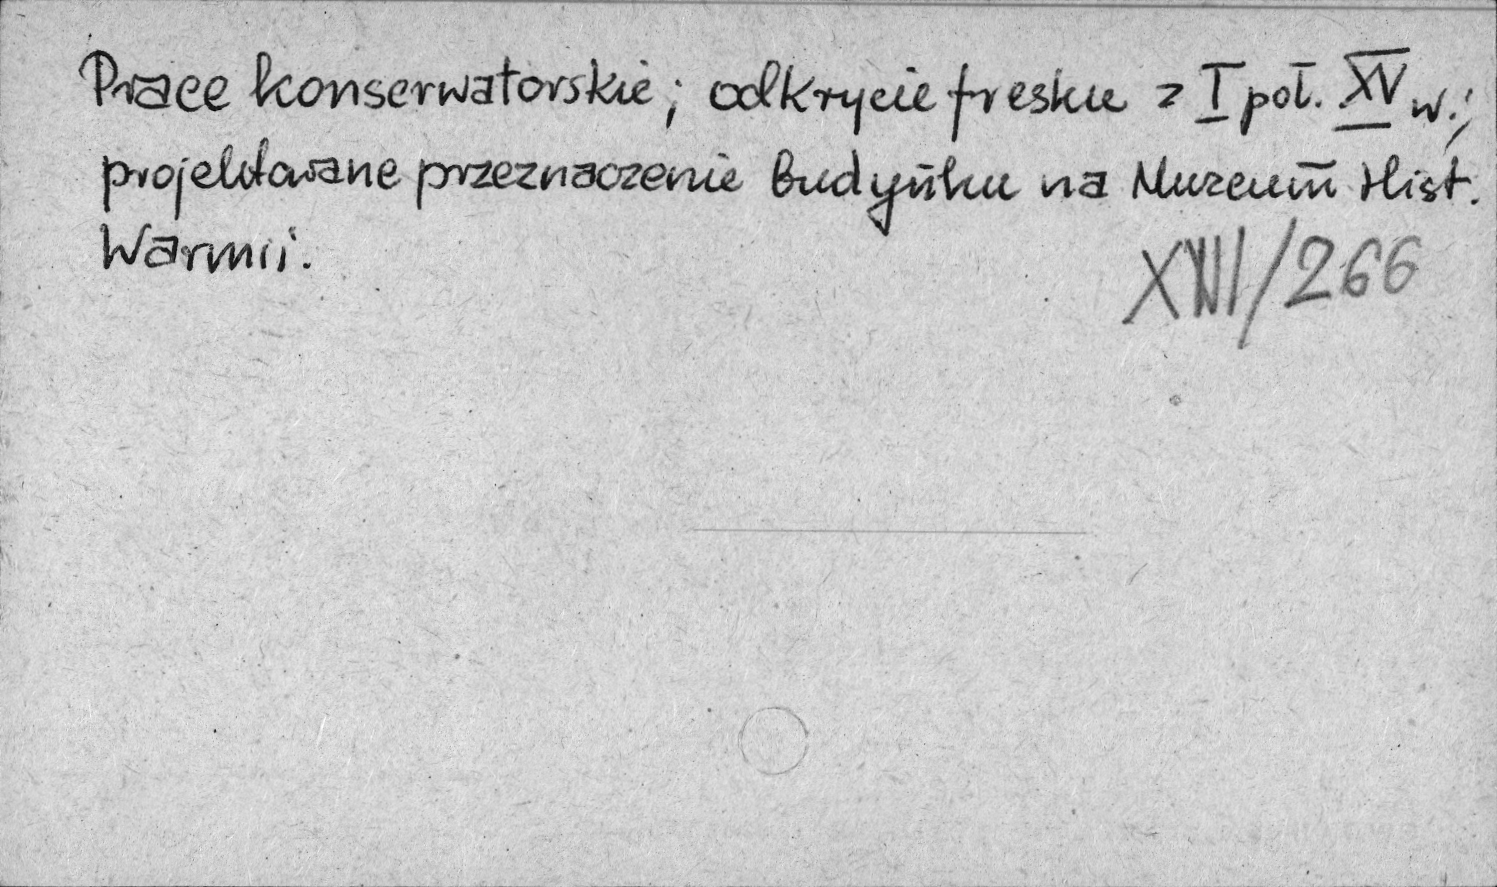 Prace konserwatorskie; odkrycie fresku z I poł. XV w.;
projektowane przeznaczenie budynku na Muzeum Hist.
Warmii.
XIII/266